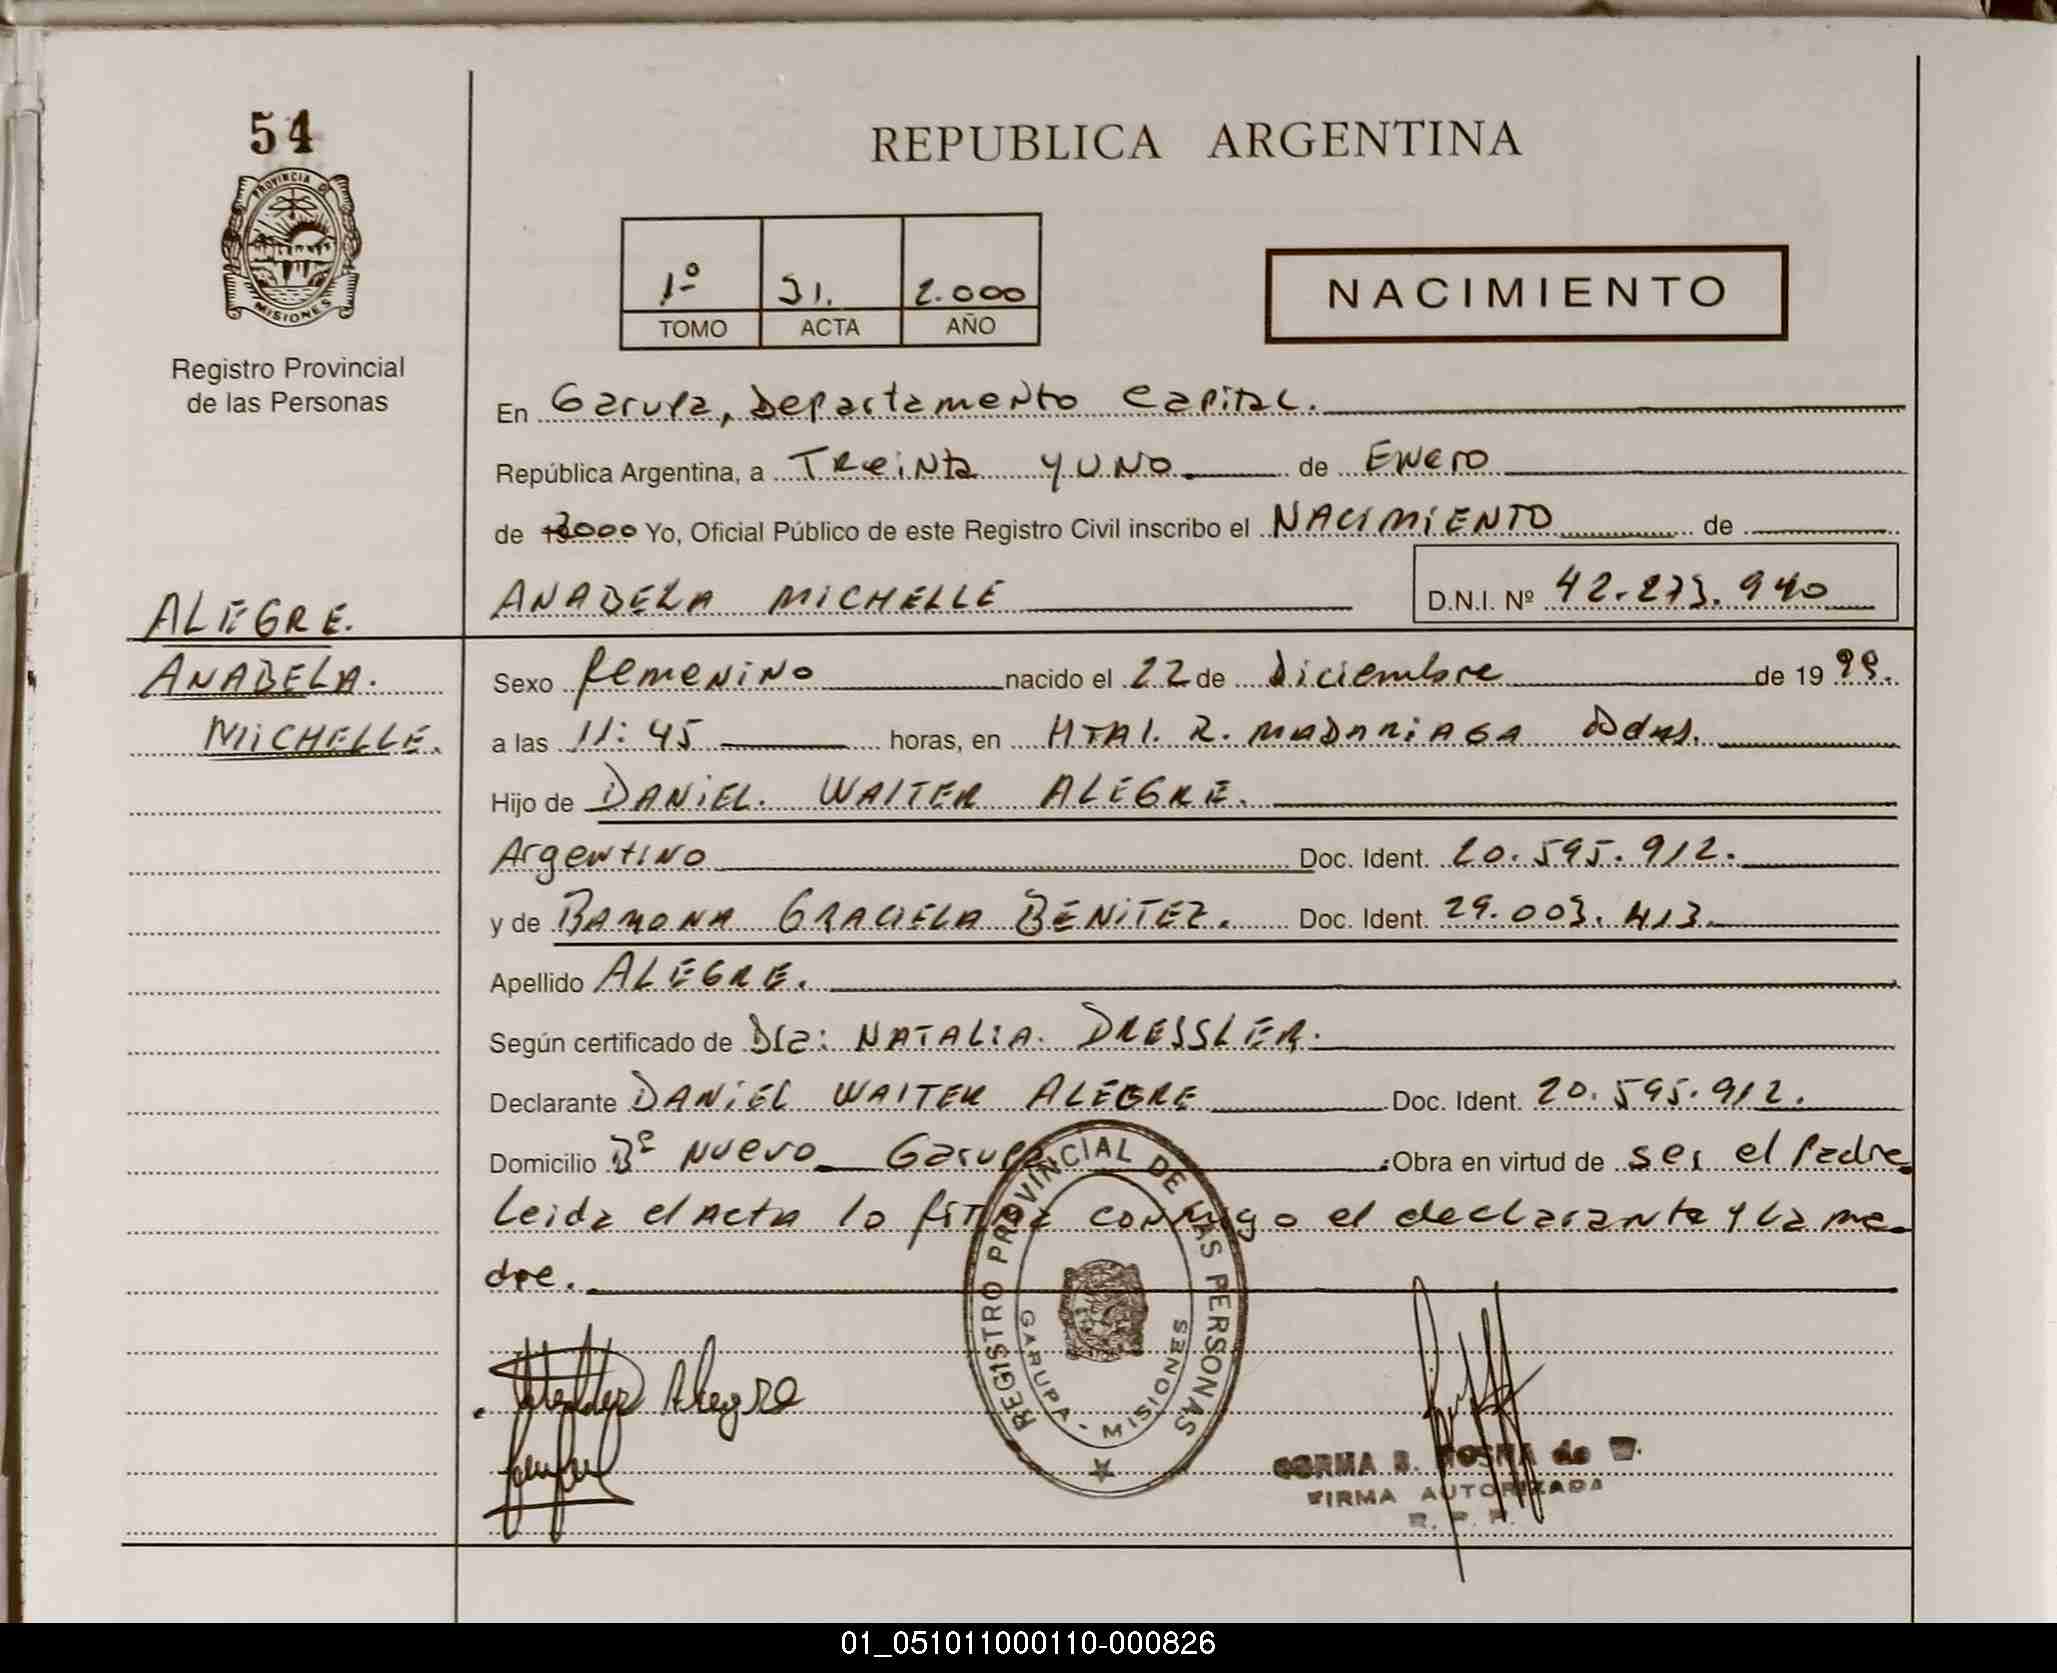 54
PROVINCIA DE
MISIONES
Registro Provincial
de las Personas
REPUBLICA ARGENTINA
1º 51. 2.000
TOMO ACTA AÑO
NACIMIENTO
En Garupa, Departamento Capital.
República Argentina, a Treinta y uno de Enero
de 2000 Yo, Oficial Público de este Registro Civil inscribo el NACIMIENTO de
ANABELA MICHELLE D.N.I. Nº 42.273.940
ALEGRE.
ANABELA.
MICHELLE.
Sexo femenino nacido el 22 de Diciembre de 19 99.
a las 11:45 horas, en HTAl. R. MADARIAGA Pdas.
Hijo de DANIEL. WALTER ALEGRE.
Argentino Doc. Ident. 20.595.912.
y de RAMONA GRACIELA BENITEZ. Doc. Ident. 29.003.413.
Apellido ALEGRE.
Según certificado de Dra: NATALIA. DRESSLER.
Declarante DANIEL WALTER ALEGRE Doc. Ident. 20.595.912.
Domicilio Bº Nuevo Garupa Obra en virtud de ser el Padre
Leida el Acta lo firma conmigo el declarante y la ma-
dre.
REGISTRO PROVINCIAL DE LAS PERSONAS
GARUPA - MISIONES
Walter Alegre
de W.
FIRMA AUTORIZADA
R. P. P.
01_051011000110-000826